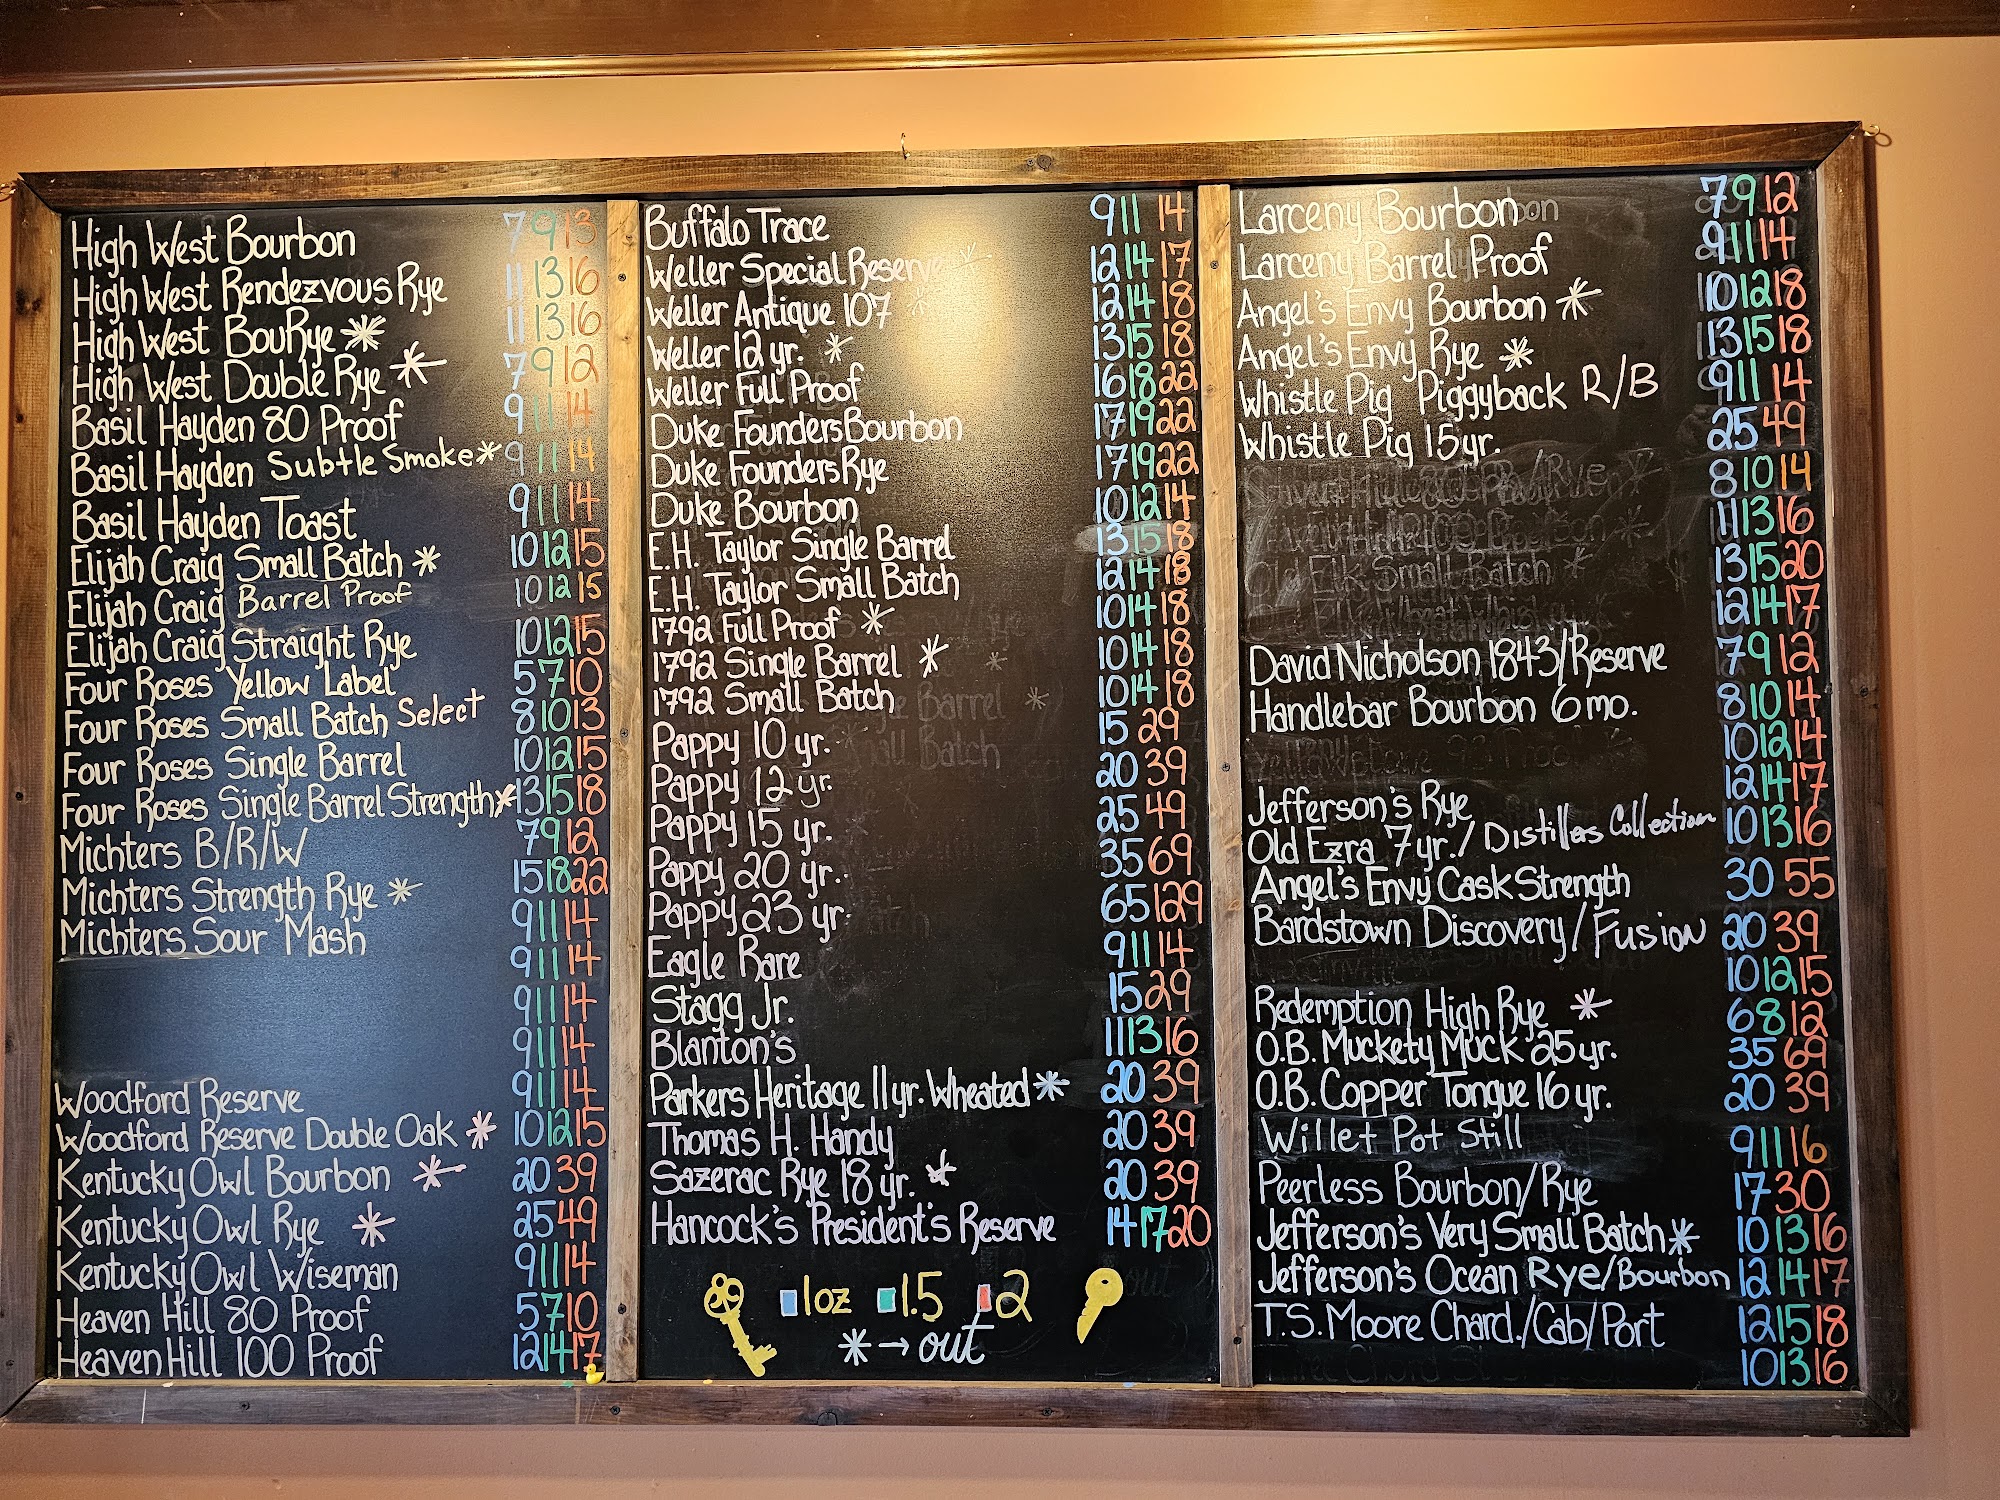 High West Bourbon 7 9 13
High West Rendezvous Rye 11 13 16
High West BouRye * 11 13 16
High West Double Rye * 7 9 12
Basil Hayden 80 Proof 9 11 14
Basil Hayden Subtle Smoke * 9 11 14
Basil Hayden Toast 9 11 14
Elijah Craig Small Batch * 10 12 15
Elijah Craig Barrel Proof 10 12 15
Elijah Craig Straight Rye 10 12 15
Four Roses Yellow Label 5 7 10
Four Roses Small Batch Select 8 10 13
Four Roses Single Barrel 10 12 15
Four Roses Single Barrel Strength * 13 15 18
Michters B/R/W 7 9 12
Michters Strength Rye * 15 18 22
Michters Sour Mash 9 11 14
9 11 14
9 11 14
9 11 14
Woodford Reserve 9 11 14
Woodford Reserve Double Oak * 10 12 15
Kentucky Owl Bourbon * 20 39
Kentucky Owl Rye * 25 49
Kentucky Owl Wiseman 9 11 14
Heaven Hill 80 Proof 5 7 10
Heaven Hill 100 Proof 12 14 17
Buffalo Trace 9 11 14
Weller Special Reserve 12 14 17
Weller Antique 107 12 14 18
Weller 12 yr. * 13 15 18
Weller Full Proof 16 18 22
Duke Founders Bourbon 17 19 22
Duke Founders Rye 17 19 22
Duke Bourbon 10 12 14
E.H. Taylor Single Barrel 13 15 18
E.H. Taylor Small Batch 12 14 18
1792 Full Proof * 10 14 18
1792 Single Barrel * 10 14 18
1792 Small Batch 10 14 18
Pappy 10 yr. 15 29
Pappy 12 yr. 20 39
Pappy 15 yr. 25 49
Pappy 20 yr. 35 69
Pappy 23 yr. 65 129
Eagle Rare 9 11 14
Stagg Jr. 15 29
Blanton's 11 13 16
Parkers Heritage 11 yr. Wheated * 20 39
Thomas H. Handy 20 39
Sazerac Rye 18 yr. * 20 39
Hancock's President's Reserve 14 17 20
1oz 1.5 2
* → out
Larceny Bourbon 7 9 12
Larceny Barrel Proof 9 11 14
Angel's Envy Bourbon * 10 12 18
Angel's Envy Rye * 13 15 18
Whistle Pig Piggyback R/B 9 11 14
Whistle Pig 15 yr. 25 49
8 10 14
11 13 16
Old Elk Small Batch * 13 15 20
12 14 17
David Nicholson 1843/Reserve 7 9 12
Handlebar Bourbon 6 mo. 8 10 14
10 12 14
Jefferson's Rye 12 14 17
Old Ezra 7 yr. / Distillers Collection 10 13 16
Angel's Envy Cask Strength 30 55
Bardstown Discovery/Fusion 20 39
10 12 15
Redemption High Rye * 6 8 12
O.B. Muckety Muck 25 yr. 35 69
O.B. Copper Tongue 16 yr. 20 39
Willet Pot Still 9 11 16
Peerless Bourbon/Rye 17 30
Jefferson's Very Small Batch * 10 13 16
Jefferson's Ocean Rye/Bourbon 12 14 17
T.S. Moore Chard./Cab/Port 12 15 18
10 13 16